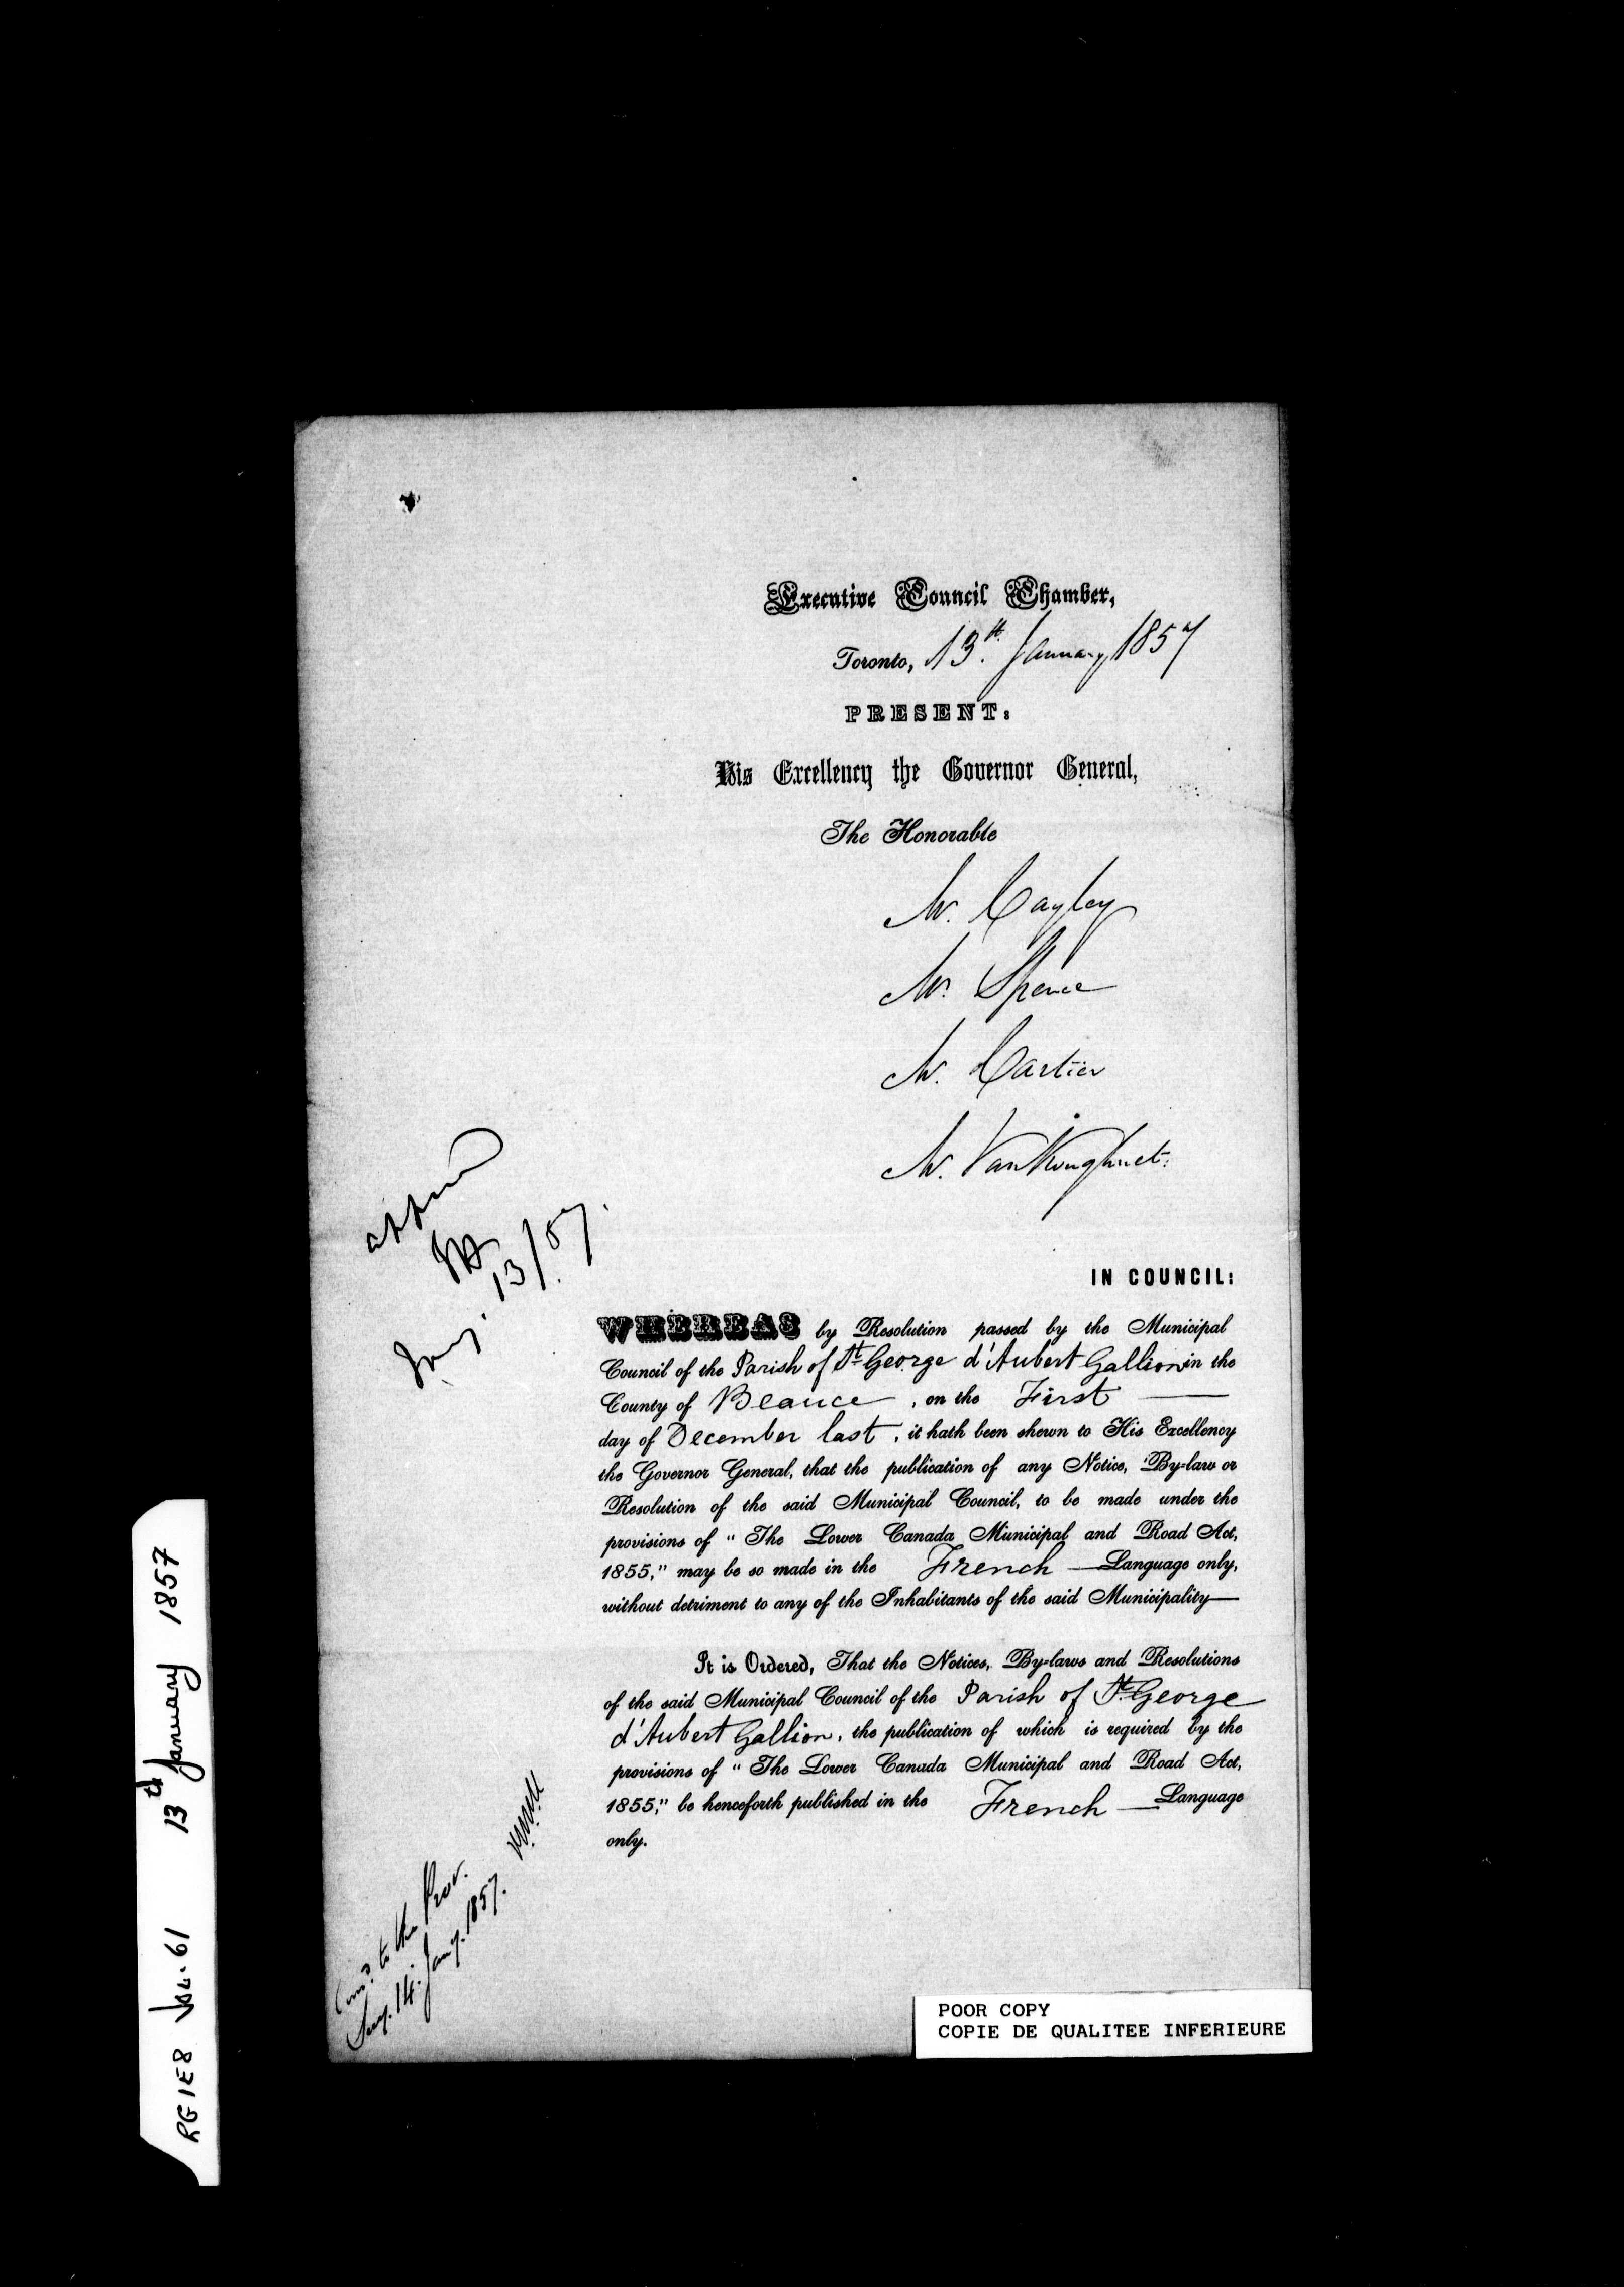 Executive Council Chamber,
Toronto, 13th January 1857
PRESENT:
His Excellency the Governor General,
The Honorable
Mr. Cayley
Mr. Spence
Mr. Cartier
Mr. VanKoughnet.
IN COUNCIL:
WHEREAS by Resolution passed by the Municipal
Council of the Parish of St. George d'Aubert Gallion in the
County of Beauce, on the First
day of December last, it hath been shewn to His Excellency
the Governor General, that the publication of any Notice, By-law or
Resolution of the said Municipal Council, to be made under the
provisions of "The Lower Canada Municipal and Road Act,
1855," may be so made in the French Language only,
without detriment to any of the Inhabitants of the said Municipality—
It is Ordered, That the Notices, By-laws and Resolutions
of the said Municipal Council of the Parish of St. George
d'Aubert Gallion, the publication of which is required by the
provisions of "The Lower Canada Municipal and Road Act,
1855," be henceforth published in the French Language
only.
Jany. 13/57.
to the Prov.
Secy. 14. Jany. 1857.
POOR COPY
COPIE DE QUALITEE INFERIEURE
RG 1 E8 Vol. 61 13th January 1857